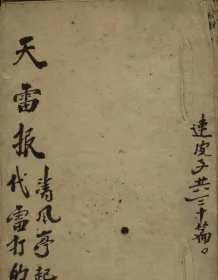 連皮子共三十篇
天雷报
清风亭起
代雷打的